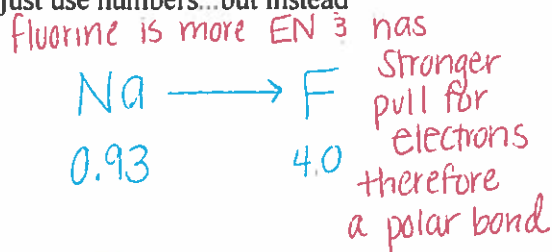 just use numbers...but instead
fluorine is more EN & has
Stronger
Na → F pull for
electrons
0.93 4.0 therefore
a polar bond